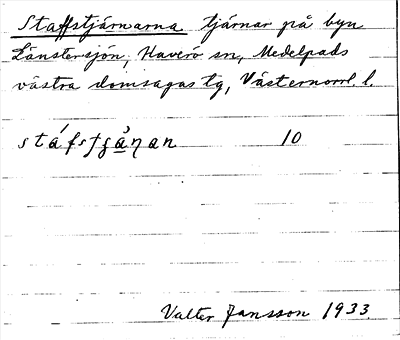 Staffstjärnarna tjärnar på byn
Länstersjön, Haverö sn, Medelpads
västra domsagas tg, Västernorrl. l.
stáfstjạ̊ŋan 10
Valter Jansson 1933.